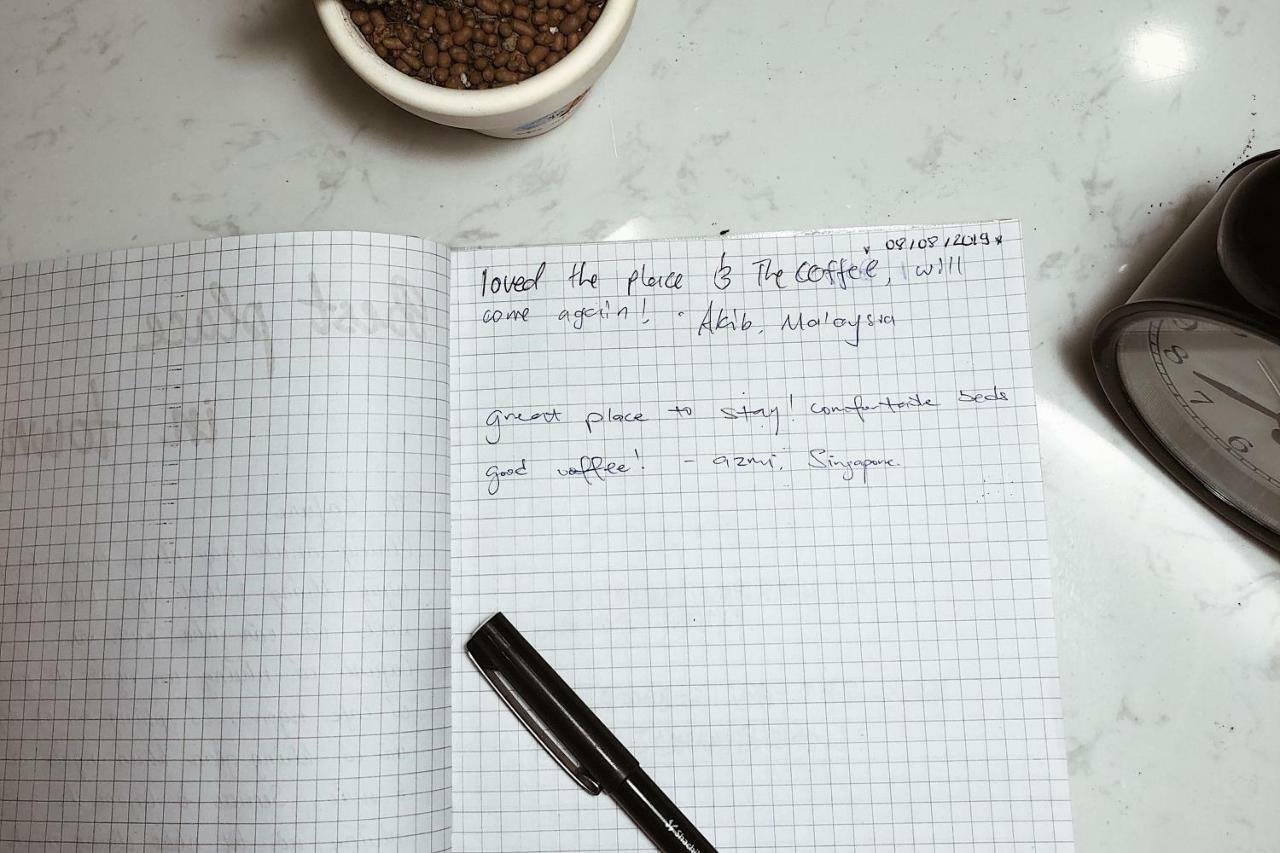 * 08/08/2019 *
loved the place & The coffee, will
come again! - Akib, Malaysia
great place to stay! comfortable beds
good coffee! - azmi, Singapore.
8
7
6